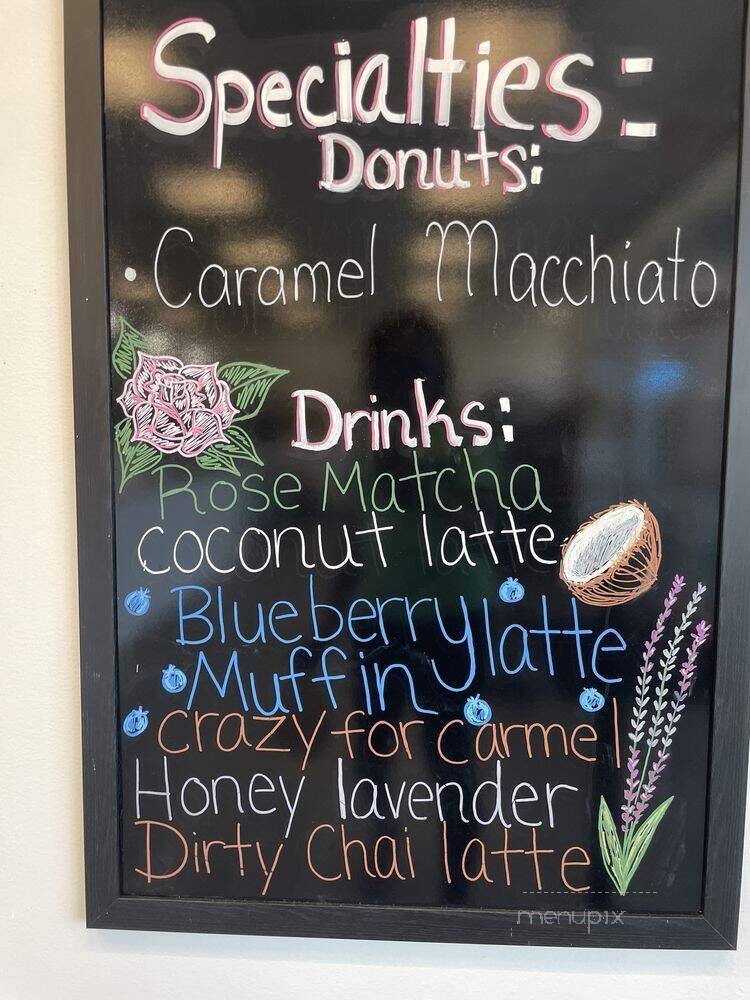 Specialties:
Donuts:
• Caramel Macchiato
Drinks:
Rose Matcha
coconut latte
Blueberry latte
Muffin
crazy for carmel
Honey lavender
Dirty Chai latte
menupix